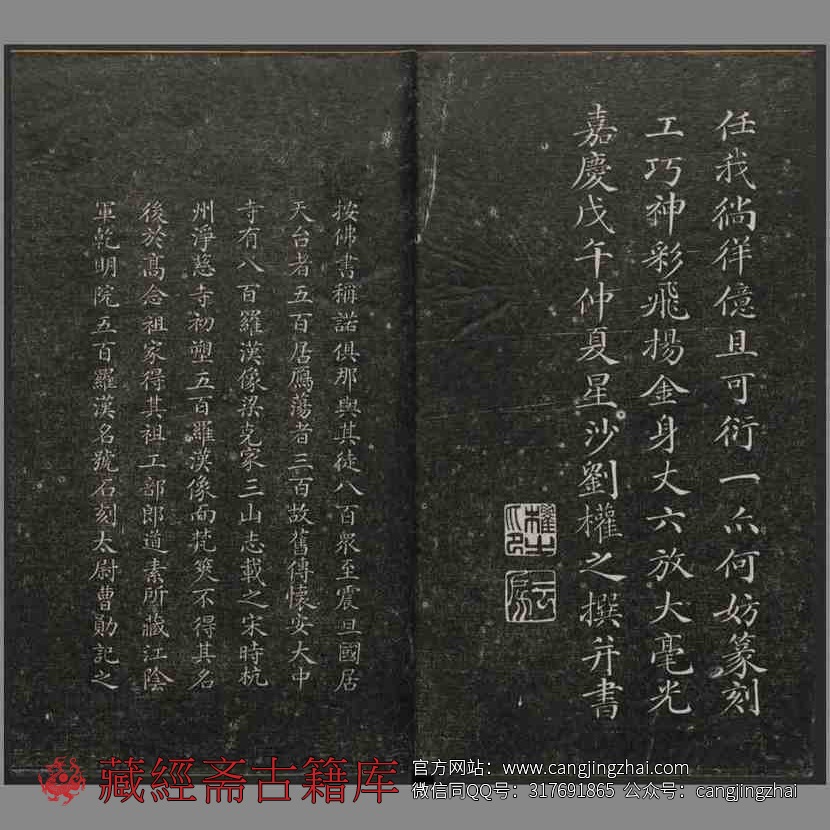 任我徜徉億且可衍一亦何妨篆刻
工巧神彩飛揚金身丈六放大毫光
嘉慶戊午仲夏星沙劉權之撰并書
權之
按佛書稱諾俱那與其徒八百眾至震旦國居
天台者五百居鴈蕩者三百故舊傳懷安大中
寺有八百羅漢像梁克家三山志載之宋時杭
州淨慈寺初塑五百羅漢像而梵筴不得其名
後於高念祖家得其祖工部郎道素所藏江陰
軍乾明院五百羅漢名號石刻太尉曹勛記之
藏經斋古籍库
官方网站：www.cangjingzhai.com
微信同QQ号：317691865 公众号：cangjingzhai